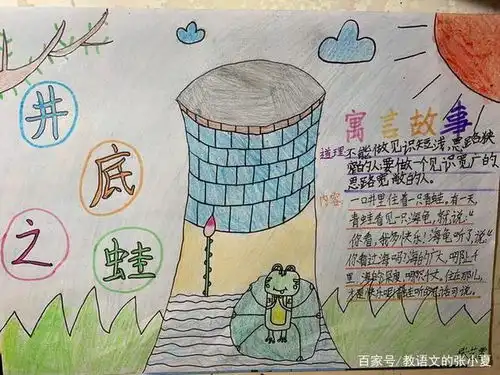 井
底
之
蛙
寓言故事
道理 不能做见识短浅,思路狭
窄的人要做一个见识宽广的
思路宽敞的人。
内容 一口井里住着一只青蛙,有一天,
青蛙看见一只海龟,就说:"
你看,我多快乐!海龟听了说:"
你看过海吗?海的广大,哪止千
住在那儿,
才是快乐呢!青蛙听的有话可说。
百家号/教语文的张小夏